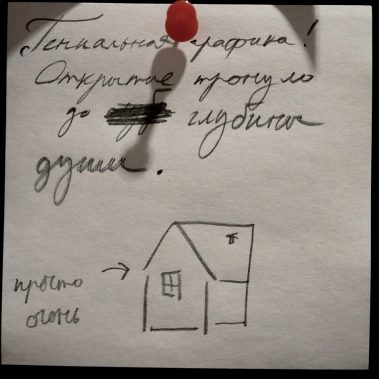 Гениальная графика!
Открытие тронуло
до глубины
души.
просто
очень